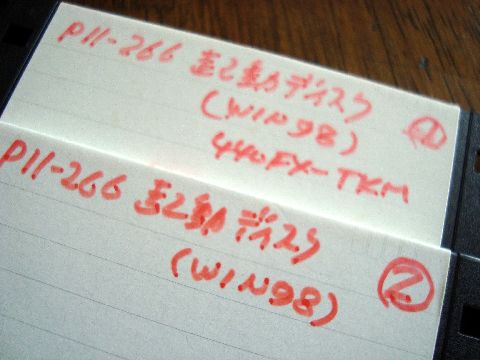 P11-266 起動ディスク
(WIN98) ①
440FX-TKM
P11-266 起動ディスク
(WIN98) ②